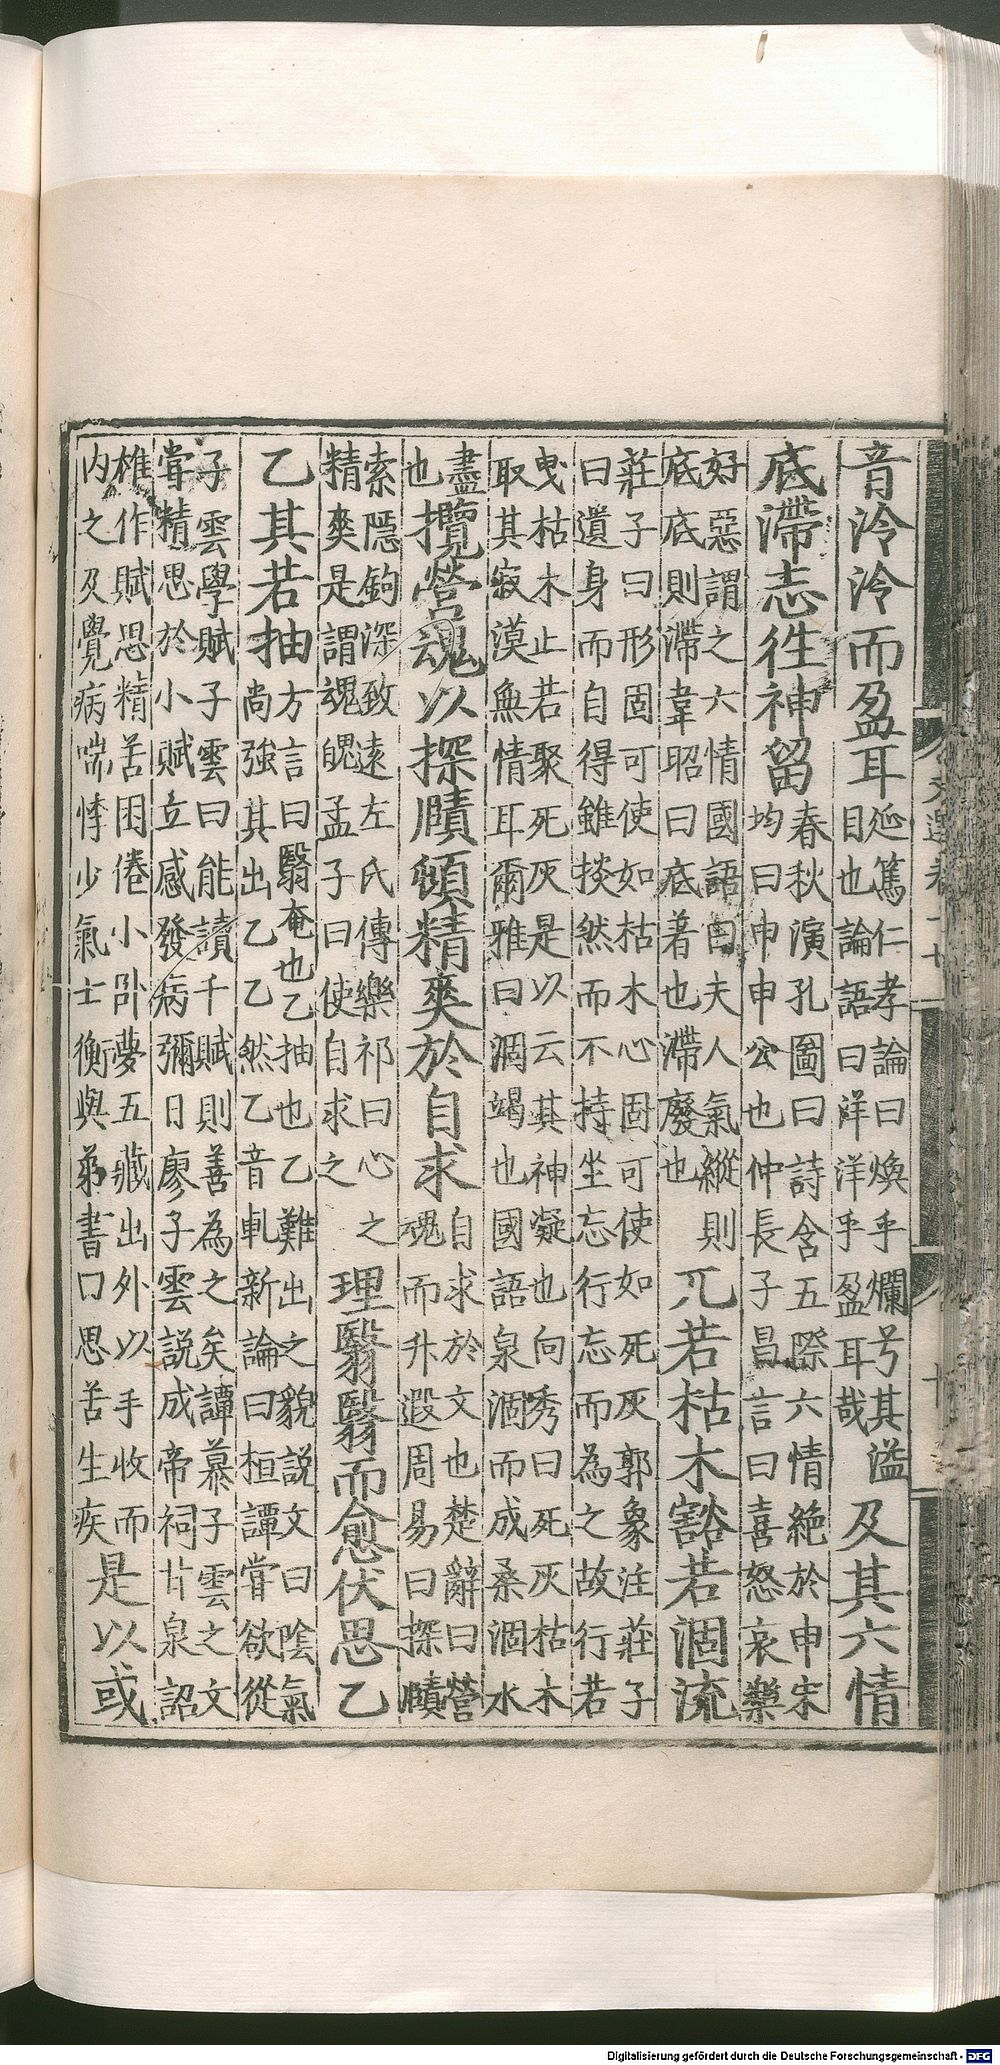 音泠泠而盈耳延篤仁孝論曰煥乎爛兮其溢目也論語曰洋洋乎盈耳哉及其六情
底滯志徃神留春秋演孔圖曰詩含五際六情絶於申宋均曰申申公也仲長子昌言曰喜怒哀樂
好惡謂之六情國語曰夫人氣縱則底底則滯韋昭曰底著也滯廢也兀若枯木豁若涸流
莊子曰形固可使如枯木心固可使如死灰郭象注莊子曰遺身而自得雖掞然而不持坐忘行忘而為之故行若
曳枯木止若聚死灰是以云其神凝也向秀曰死灰枯木取其寂漠無情耳爾雅曰涸竭也國語泉涸而成桑涸水
盡也攬營魂以探賾頓精爽於自求自求於文也楚辭曰營魂而升遐周易曰探賾
索隠鉤深致遠左氏傳樂祁曰心之精爽是謂魂魄孟子曰使自求之理翳翳而愈伏思乙
乙其若抽方言曰翳奄也乙抽也乙難出之貌説文曰隂氣尚強其出乙乙然乙音軋新論曰桓譚甞欲從
子雲學賦子雲曰能讀千賦則善為之矣譚慕子雲之文甞精思於小賦立感發病彌日廖子雲説成帝祠甘泉詔
椎作賦思精苦困倦小卧夢五藏出外以手收而内之及覺病喘悸少氣士衡與弟書曰思苦生疾是以或